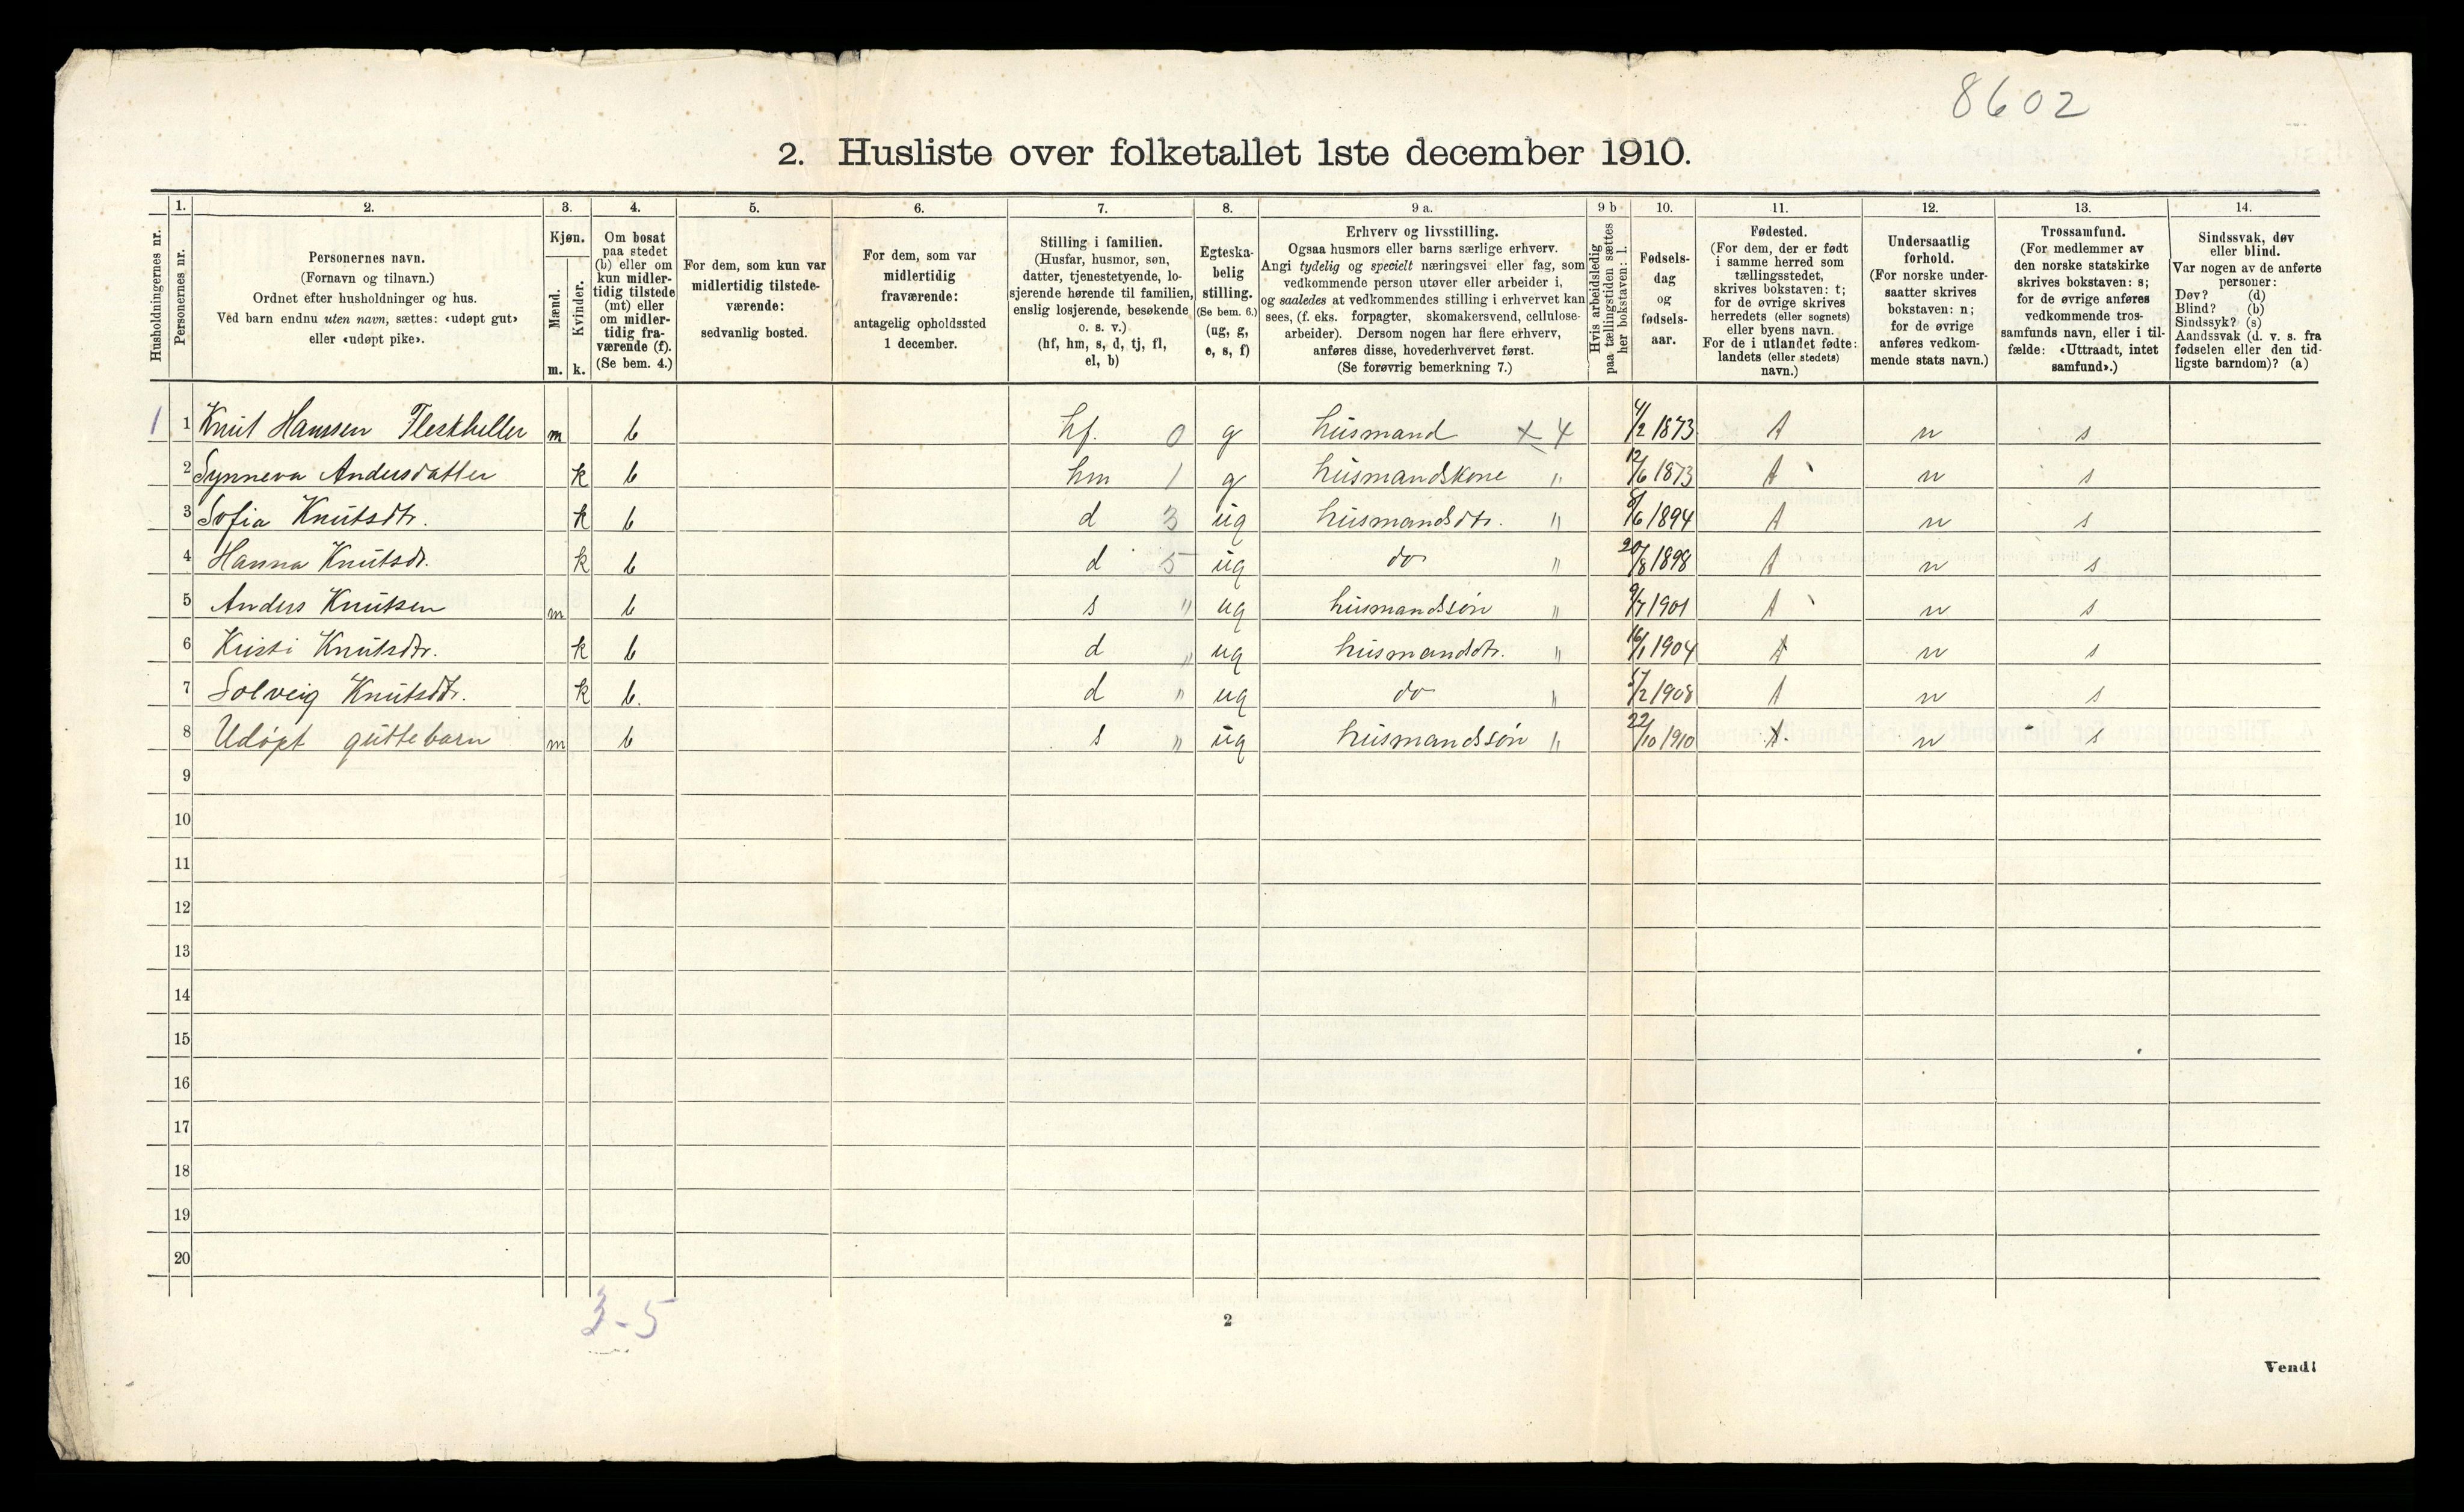 8602
2. Husliste over folketallet 1ste december 1910.
Husholdningernes nr.
1.
Personernes nr.
2.
Personernes navn.
(Fornavn og tilnavn.)
Ordnet efter husholdninger og hus.
Ved barn endnu uten navn, sættes: «udøpt gut»
eller «udøpt pike».
3.
Kjøn.
Mænd.
Kvinder.
m. k.
4.
Om bosat
paa stedet
(b) eller om
kun midler-
tidig tilstede
(mt) eller
om midler-
tidig fra-
værende (f).
(Se bem. 4.)
5.
For dem, som kun var
midlertidig tilstede-
værende:
sedvanlig bosted.
6.
For dem, som var
midlertidig
fraværende:
antagelig opholdssted
1 december.
7.
Stilling i familien.
(Husfar, husmor, søn,
datter, tjenestetyende, lo-
sjerende hørende til familien,
enslig losjerende, besøkende
o. s. v.)
(hf, hm, s, d, tj, fl,
el, b)
8.
Egteska-
belig
stilling.
(Se bem. 6.)
(ug, g,
e, s, f)
9 a.
Erhverv og livsstilling.
Ogsaa husmors eller barns særlige erhverv.
Angi tydelig og specielt næringsvei eller fag, som
vedkommende person utøver eller arbeider i,
og saaledes at vedkommendes stilling i erhvervet kan
sees, (f. eks. forpagter, skomakersvend, cellulose-
arbeider). Dersom nogen har flere erhverv,
anføres disse, hovederhvervet først.
(Se forøvrig bemerkning 7.)
9 b
Hvis arbeidsledig
paa tællingstiden sættes
her bokstaven: l.
10.
Fødsels-
dag
og
fødsels-
aar.
11.
Fødested.
(For dem, der er født
i samme herred som
tællingsstedet,
skrives bokstaven: t;
for de øvrige skrives
herredets (eller sognets)
eller byens navn.
For de i utlandet fødte:
landets (eller stedets)
navn.)
12.
Undersaatlig
forhold.
(For norske under-
saatter skrives
bokstaven: n;
for de øvrige
anføres vedkom-
mende stats navn.)
13.
Trossamfund.
(For medlemmer av
den norske statskirke
skrives bokstaven: s;
for de øvrige anføres
vedkommende tros-
samfunds navn, eller i til-
fælde: «Uttraadt, intet
samfund».)
14.
Sindssvak, døv
eller blind.
Var nogen av de anførte
personer:
Døv? (d)
Blind? (b)
Sindssyk? (s)
Aandssvak (d. v. s. fra
fødselen eller den tid-
ligste barndom)? (a)
1 1 Knut Hanssen Fleskheller m b hf. 0 g husmand x 4 4/2 1873 t n s
2 Synneva Andersdatter k b hm 1 g husmandskone " 12/6 1873 t n s
3 Sofia Knutsdtr. k b d 3 ug husmandsdtr. " 8/6 1894 t n s
4 Hanna Knutsdr. k b d 5 ug do " 20/8 1898 t n s
5 Anders Knutsen m b s " ug husmandssøn " 9/7 1901 t n s
6 Kristi Knutsdtr. k b d " ug husmandsdtr. " 16/1 1904 t n s
7 Solveig Knutsdtr. k b. d " ug do " 5/2 1908 t n s
8 Udøpt guttebarn m b s " ug husmandssøn " 22/10 1910 t n s
9
10
11
12
13
14
15
16
17
18
19
20
3-5
2
Vend!